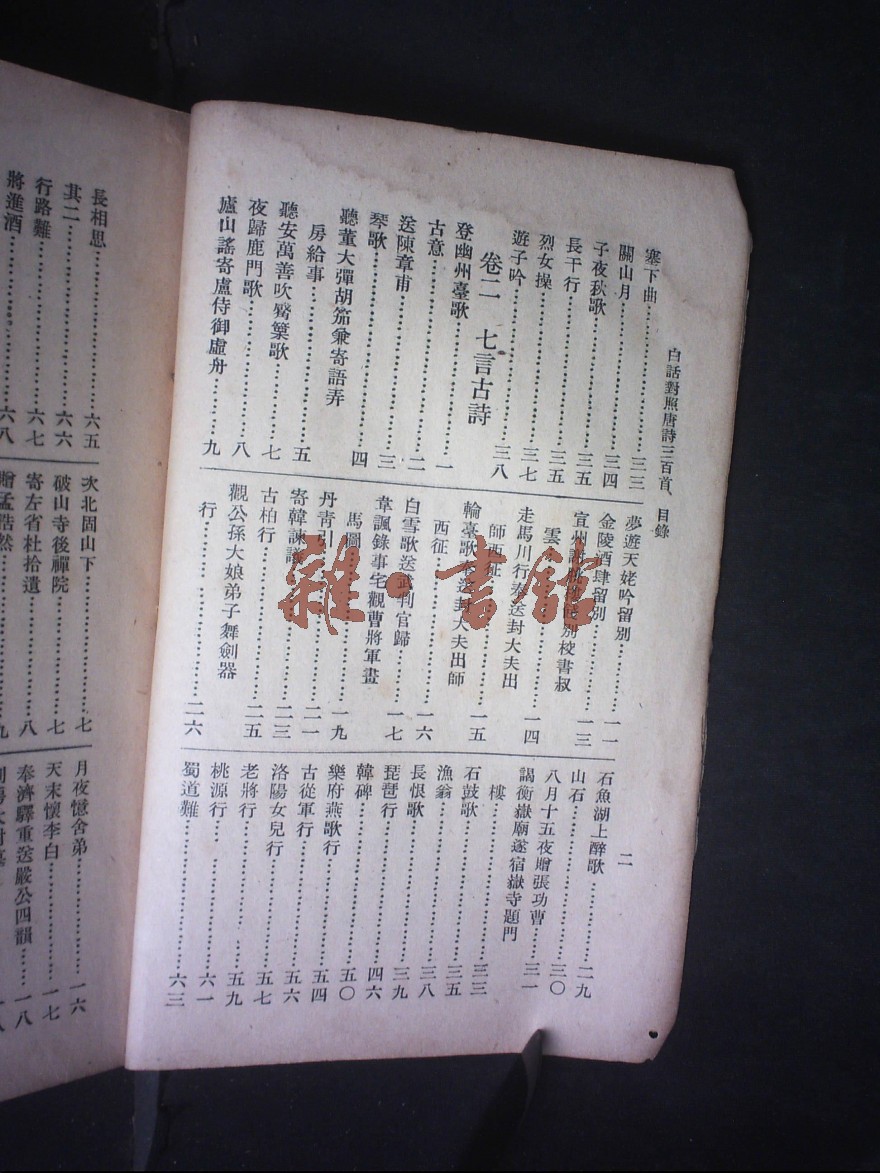 白話對照唐詩三百首、目錄
二
塞下曲……三三
關山月……三四
子夜秋歌……三五
長干行……三五
烈女操……三七
遊子吟……三八
卷二　七言古詩
登幽州臺歌……一
古意……二
送陳章甫……三
琴歌……四
聽董大彈胡笳兼寄語弄
房給事……五
聽安萬善吹觱篥歌……七
夜歸鹿門歌……八
廬山謠寄盧侍御虛舟……九
夢遊天姥吟留別……一一
金陵酒肆留別……一三
宣州 別校書叔
雲……一四
走馬川行奉送封大夫出
師西征……一五
輪臺歌奉送封大夫出師
西征……一六
白雪歌送武判官歸……一七
韋諷錄事宅觀曹將軍畫
馬圖……一九
丹青引……二一
寄韓諫議……二三
古柏行……二五
觀公孫大娘弟子舞劍器
行……二六
石魚湖上醉歌……二九
山石……三〇
八月十五夜贈張功曹……三一
謁衡嶽廟遂宿嶽寺題門
樓……三三
石鼓歌……三五
漁翁……三八
長恨歌……三九
琵琶行……四六
韓碑……五〇
樂府燕歌行……五四
古從軍行……五六
洛陽女兒行……五七
老將行……五九
桃源行……六一
蜀道難……六三
長相思……六五
其二……六六
行路難……六七
將進酒……六八
次北固山下……七
破山寺後禪院……七
寄左省杜拾遺……八
贈孟浩然……九
月夜憶舍弟……一六
天末懷李白……一七
奉濟驛重送嚴公四韻……一八